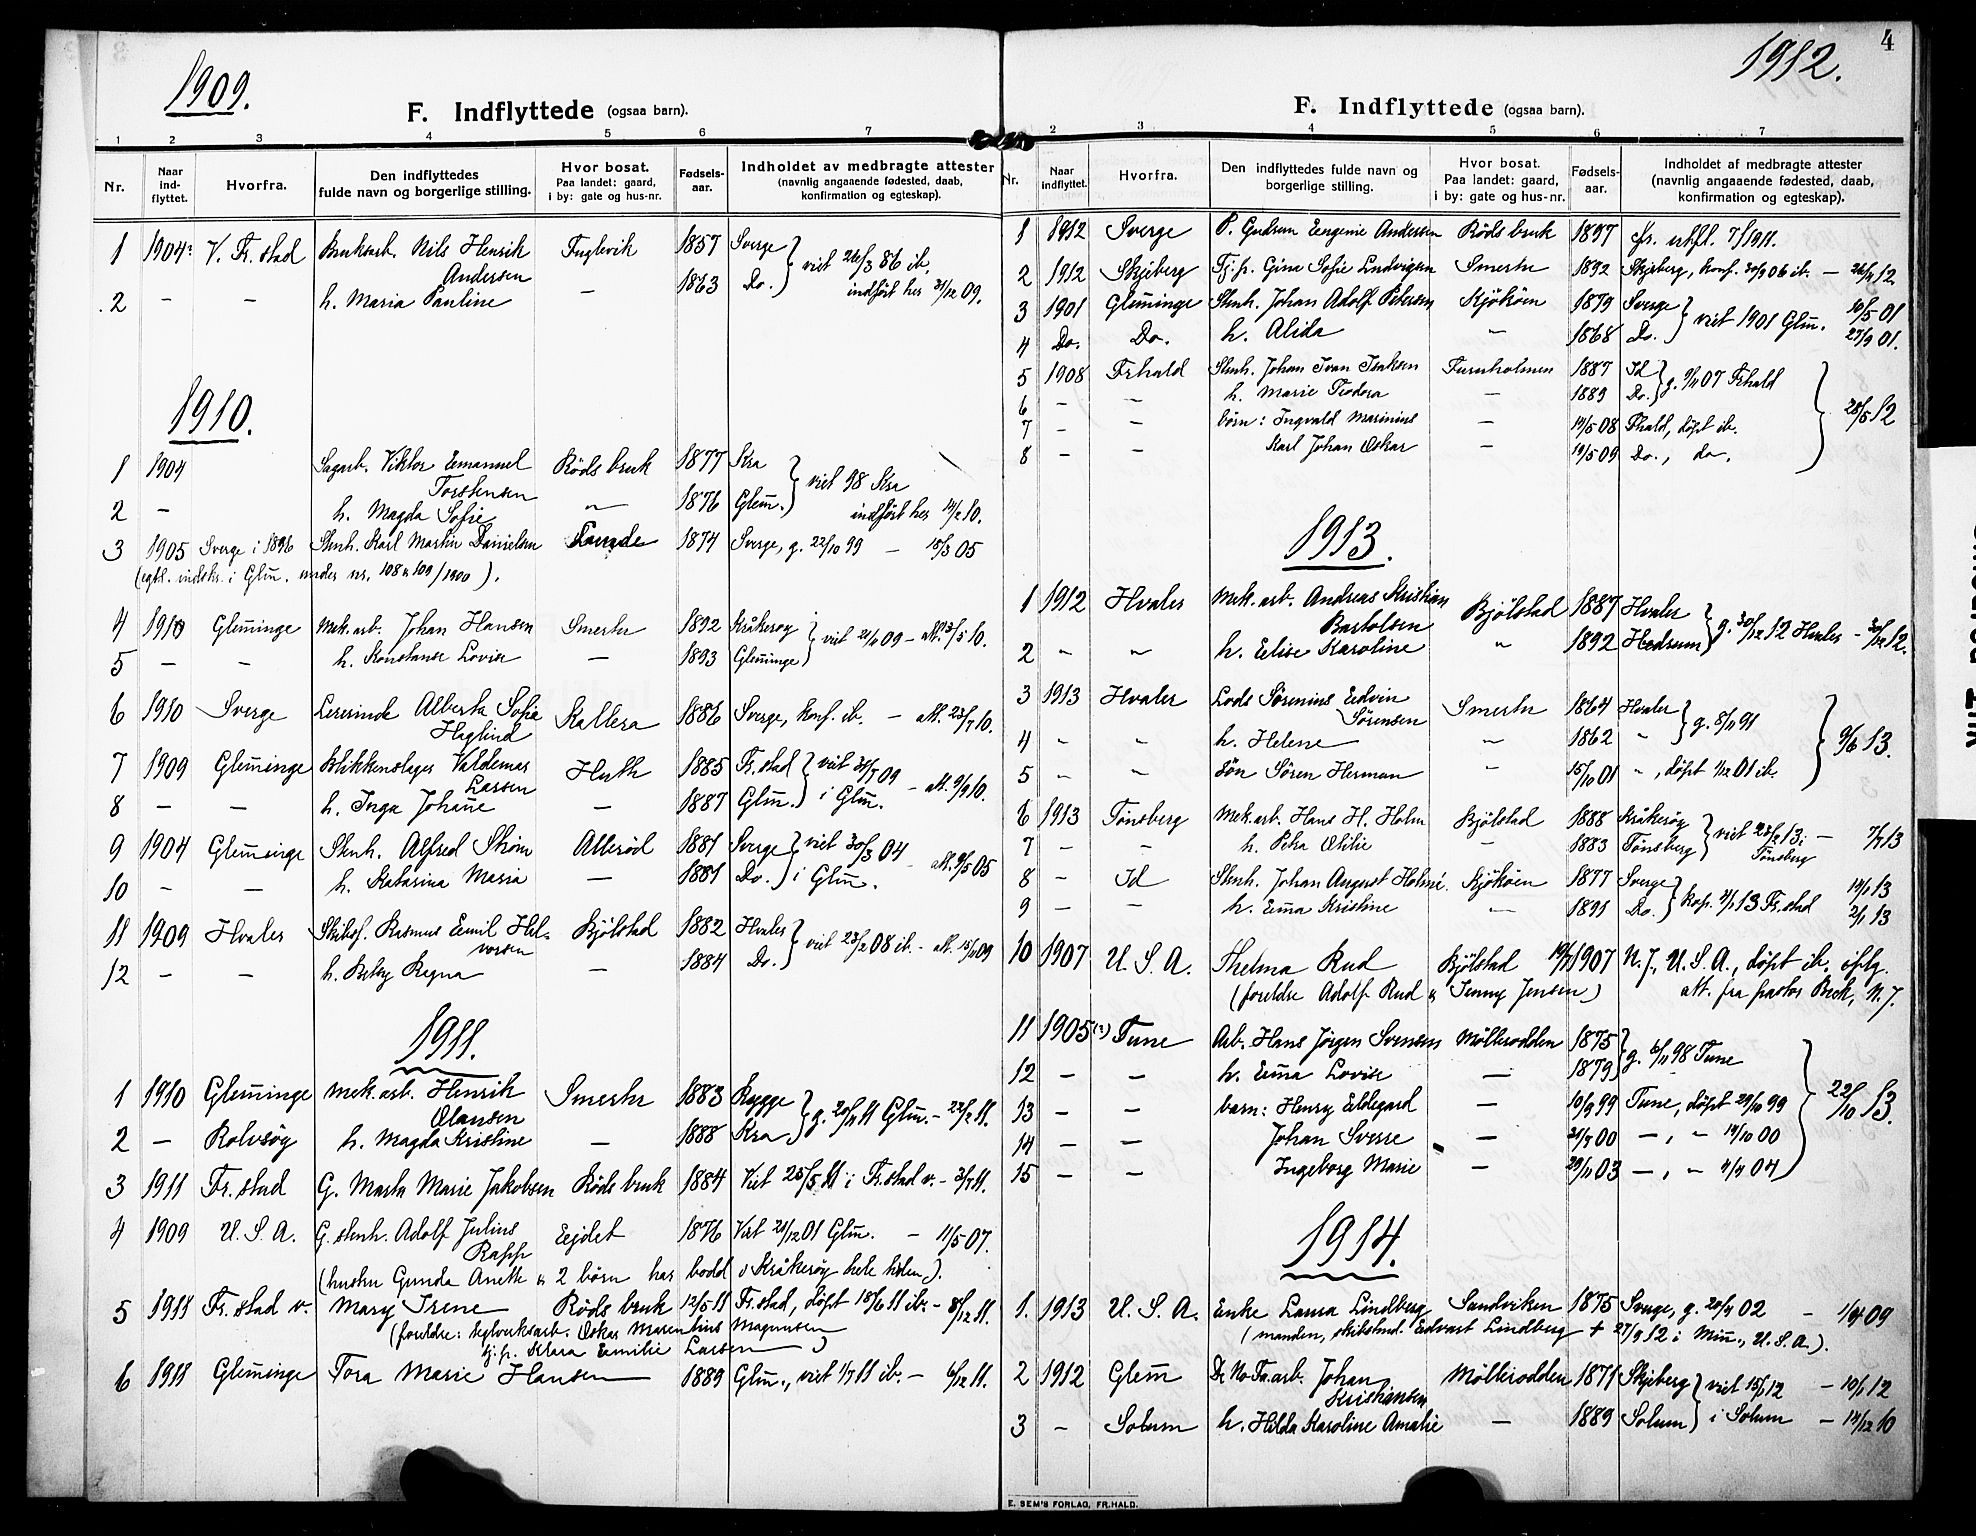 1909.
F. Indflyttede (ogsaa barn).
1 2 3 4 5 6 7
Nr. Naar ind-flyttet. Hvorfra. Den indflyttedes fulde navn og borgerlige stilling. Hvor bosat. Paa landet: gaard, i by: gate og hus-nr. Fødsels-aar. Indholdet av medbragte attester (navnlig angaaende fødested, daab, konfirmation og egteskap).
1 1904: V. Fr.stad Bruksarb. Nils Henrik Fuglevik 1857 Sverge } viet 26/3 86 ib.
Andersen
2 – – h. Maria Pauline – 1863 Do. } indført her 31/12 09.
1910.
1 1904 Sagarb. Viktor Emanuel Røds bruk 1877 Kra } viet 98 Kra
Torstensen
2 – h. Magda Sofie " 1876 Glem̄. } indført her 14/2 10.
3 1905 Sverge i 1896 Stenh. Karl Martin Danielsen 1874 Sverge, g. 22/10 99 – 18/3 05
(egtl. indskr. i Glm̄. under nr. 108 & 109/1900).
4 1910 Glem̄inge Mek. arb. Johan Hansen Smerter 1892 Kråkerøy } viet 21/11 09 – att. 3/5 10.
5 – – h. Konstanse Lovise – 1893 Glem̄inge }
6 1910 Sverge Lererinde Alberta Sofia Kallera 1886 Sverge, konf. ib. – att. 23/7 10.
Haglind
7 1909 Glem̄inge Blikkenslager Valdemar Huth 1885 Fr.stad } viet 31/7 09 – att. 9/9 10.
Larsen
8 – – h. Inga Johan̄e – 1887 Glm̄. } i Glm̄.
9 1904 Glem̄inge Stenh. Alfred Strøm Alberød 1881 Sverge } viet 30/3 04 – att. 9/5 05
10 – – h. Katarina Maria – 1881 Do. } i Glm̄.
11 1909 Hvaler Skibsf. Rasmus Emil Hal- Bjølstad 1882 Hvaler } viet 23/2 08 ib. – att. 15/11 09
vorsen
12 – – h. Betsy Regna – 1884 Do. }
1911.
1 1910 Glem̄inge Mek. arb. Henrik Smerter 1883 Rygge } g. 20/11 11 Glm̄. – 22/2 11.
Olausen
2 – Rolvsøy h. Magda Kristine – 1888 Kra }
3 1911 Fr.stad G. Marta Marie Jakobsen Røds bruk 1884 Viet 25/5 11 i Fr.stad v. – 3/7 11.
4 1909 U.S.A. G. stenh. Adolf Julius Eejdet 1876 Viet 21/12 01 Glm̄. – 11/5 07.
Rapp
(hustru Gunda Anette & 2 børn har bodd i Kråkerøy hele tiden).
5 1911 Fr.stad v. Mary Irene Røds bruk 12/5 11 Fr.stad, døpt 18/6 11 ib. – 8/12 11.
(foreldre: teglverksarb. Oskar Marentius Magnussen
tj.p. Klara Emilie Larsen)
6 1911 Glem̄inge Tora Marie Hansen 1889 Glm̄., viet 1/7 11 ib. – 6/12 11.
4
1912.
F. Indflyttede (ogsaa barn).
2 3 4 5 6 7
Nr. Naar indflyttet. Hvorfra. Den indflyttedes fulde navn og borgerlige stilling. Hvor bosat. Paa landet: gaard, i by: gate og hus-nr. Fødsels-aar. Indholdet af medbragte attester (navnlig angaaende fødested, daab, konfirmation og egteskap).
1 1912 Sverge P. Gudrun Eugenie Andersen Røds bruk 1897 fr. utfl. 7/1911.
2 1912 Skjeberg Tj.p. Gina Sofie Ludvigsen Smerter 1892 Skjeberg, konf. 30/9 06 ib. – 26/2 12
3 1901 Glem̄inge Stenh. Johan Adolf Petersen Kjøkøen 1879 Sverge } viet 1901 Glm̄. 10/5 01
4 Do. Do. h. Alida " 1868 Do. } 27/9 01.
5 1908 Frhald Stenh. Johan Ivan Isaksen Furuholmen 1887 Id } g. 9/11 07 Frhald
6 – – h. Marie Teodora – 1889 Do. } 28/5 12
7 – – børn: Ingvald Marinius – 14/5 08 Fhald, døpt ib.
8 – – Karl Johan Oskar – 19/5 09 Do., do.
1913.
1 1912 Hvaler Mek. arb. Andreas Kristian Bjølstad 1887 Hvaler } g. 30/12 12 Hvaler – 30/12 12.
Bartolsen
2 " " h. Elise Karoline " 1892 Hedrum }
3 1913 Hvaler Lods Sørenius Edvin Smerter 1864 Hvaler } g. 8/11 91
Sørensen
4 " " h. Helene " 1862 " } 9/6 13.
5 " " søn Søren Herman " 15/10 01 ", døpt 1/12 01 ib.
6 1913 Tønsberg Mek. arb. Hans H. Holm Bjølstad 1888 Kråkerøy } viet 23/2 13 i – 7/7 13
7 – – h. Petra Otilie – 1883 Tønsberg } Tønsberg
8 – Id Stenh. Johan August Holmé. Kjøkøen 1877 Sverge } kop. 2/1 13 Fr.stad 14/1 13
9 – – h. Em̄a Kristine " 1891 Do. } 2/1 13
10 1907 U.S.A. Thelma Rud Bjølstad 1907 N.J., U.S.A., døpt ib. ifølg.
(foreldre Adolf Rud & Jenny Jensen) att. fra pastor Beck, N.J.
11 1905 (?) Tune Arb. Hans Jørgen Svensen Møllerodden 1875 } g. 6/11 98 Tune
12 – – h. Em̄a Lovise – 1879 }
13 – – barn: Henry Eldegard – 10/9 99 Tune, døpt 29/10 99 22/10 13.
14 – – Johan Sverre – 21/7 00 –, " 14/10 00
15 – – Ingeborg Marie – 29/11 03 –, " 4/4 04
1914.
1. 1913 U.S.A. Enke Laura Lindberg Sandviken 1875 Sverge, g. 20/4 02 – 09
(manden, skibstmd. Edvart Lindberg + 27/9 12 i Min̄., U.S.A.).
2 1912 Glem̄ De No Fa. arb. Johan Møllerodden 1871 Skjeberg } viet 15/6 12 – 10/6 12
Kristiansen
3 – Solum h. Hilda Karoline Amalie – 1889 Solum } i Solum – 14/12 10
E. SEM'S FORLAG, FR.HALD.